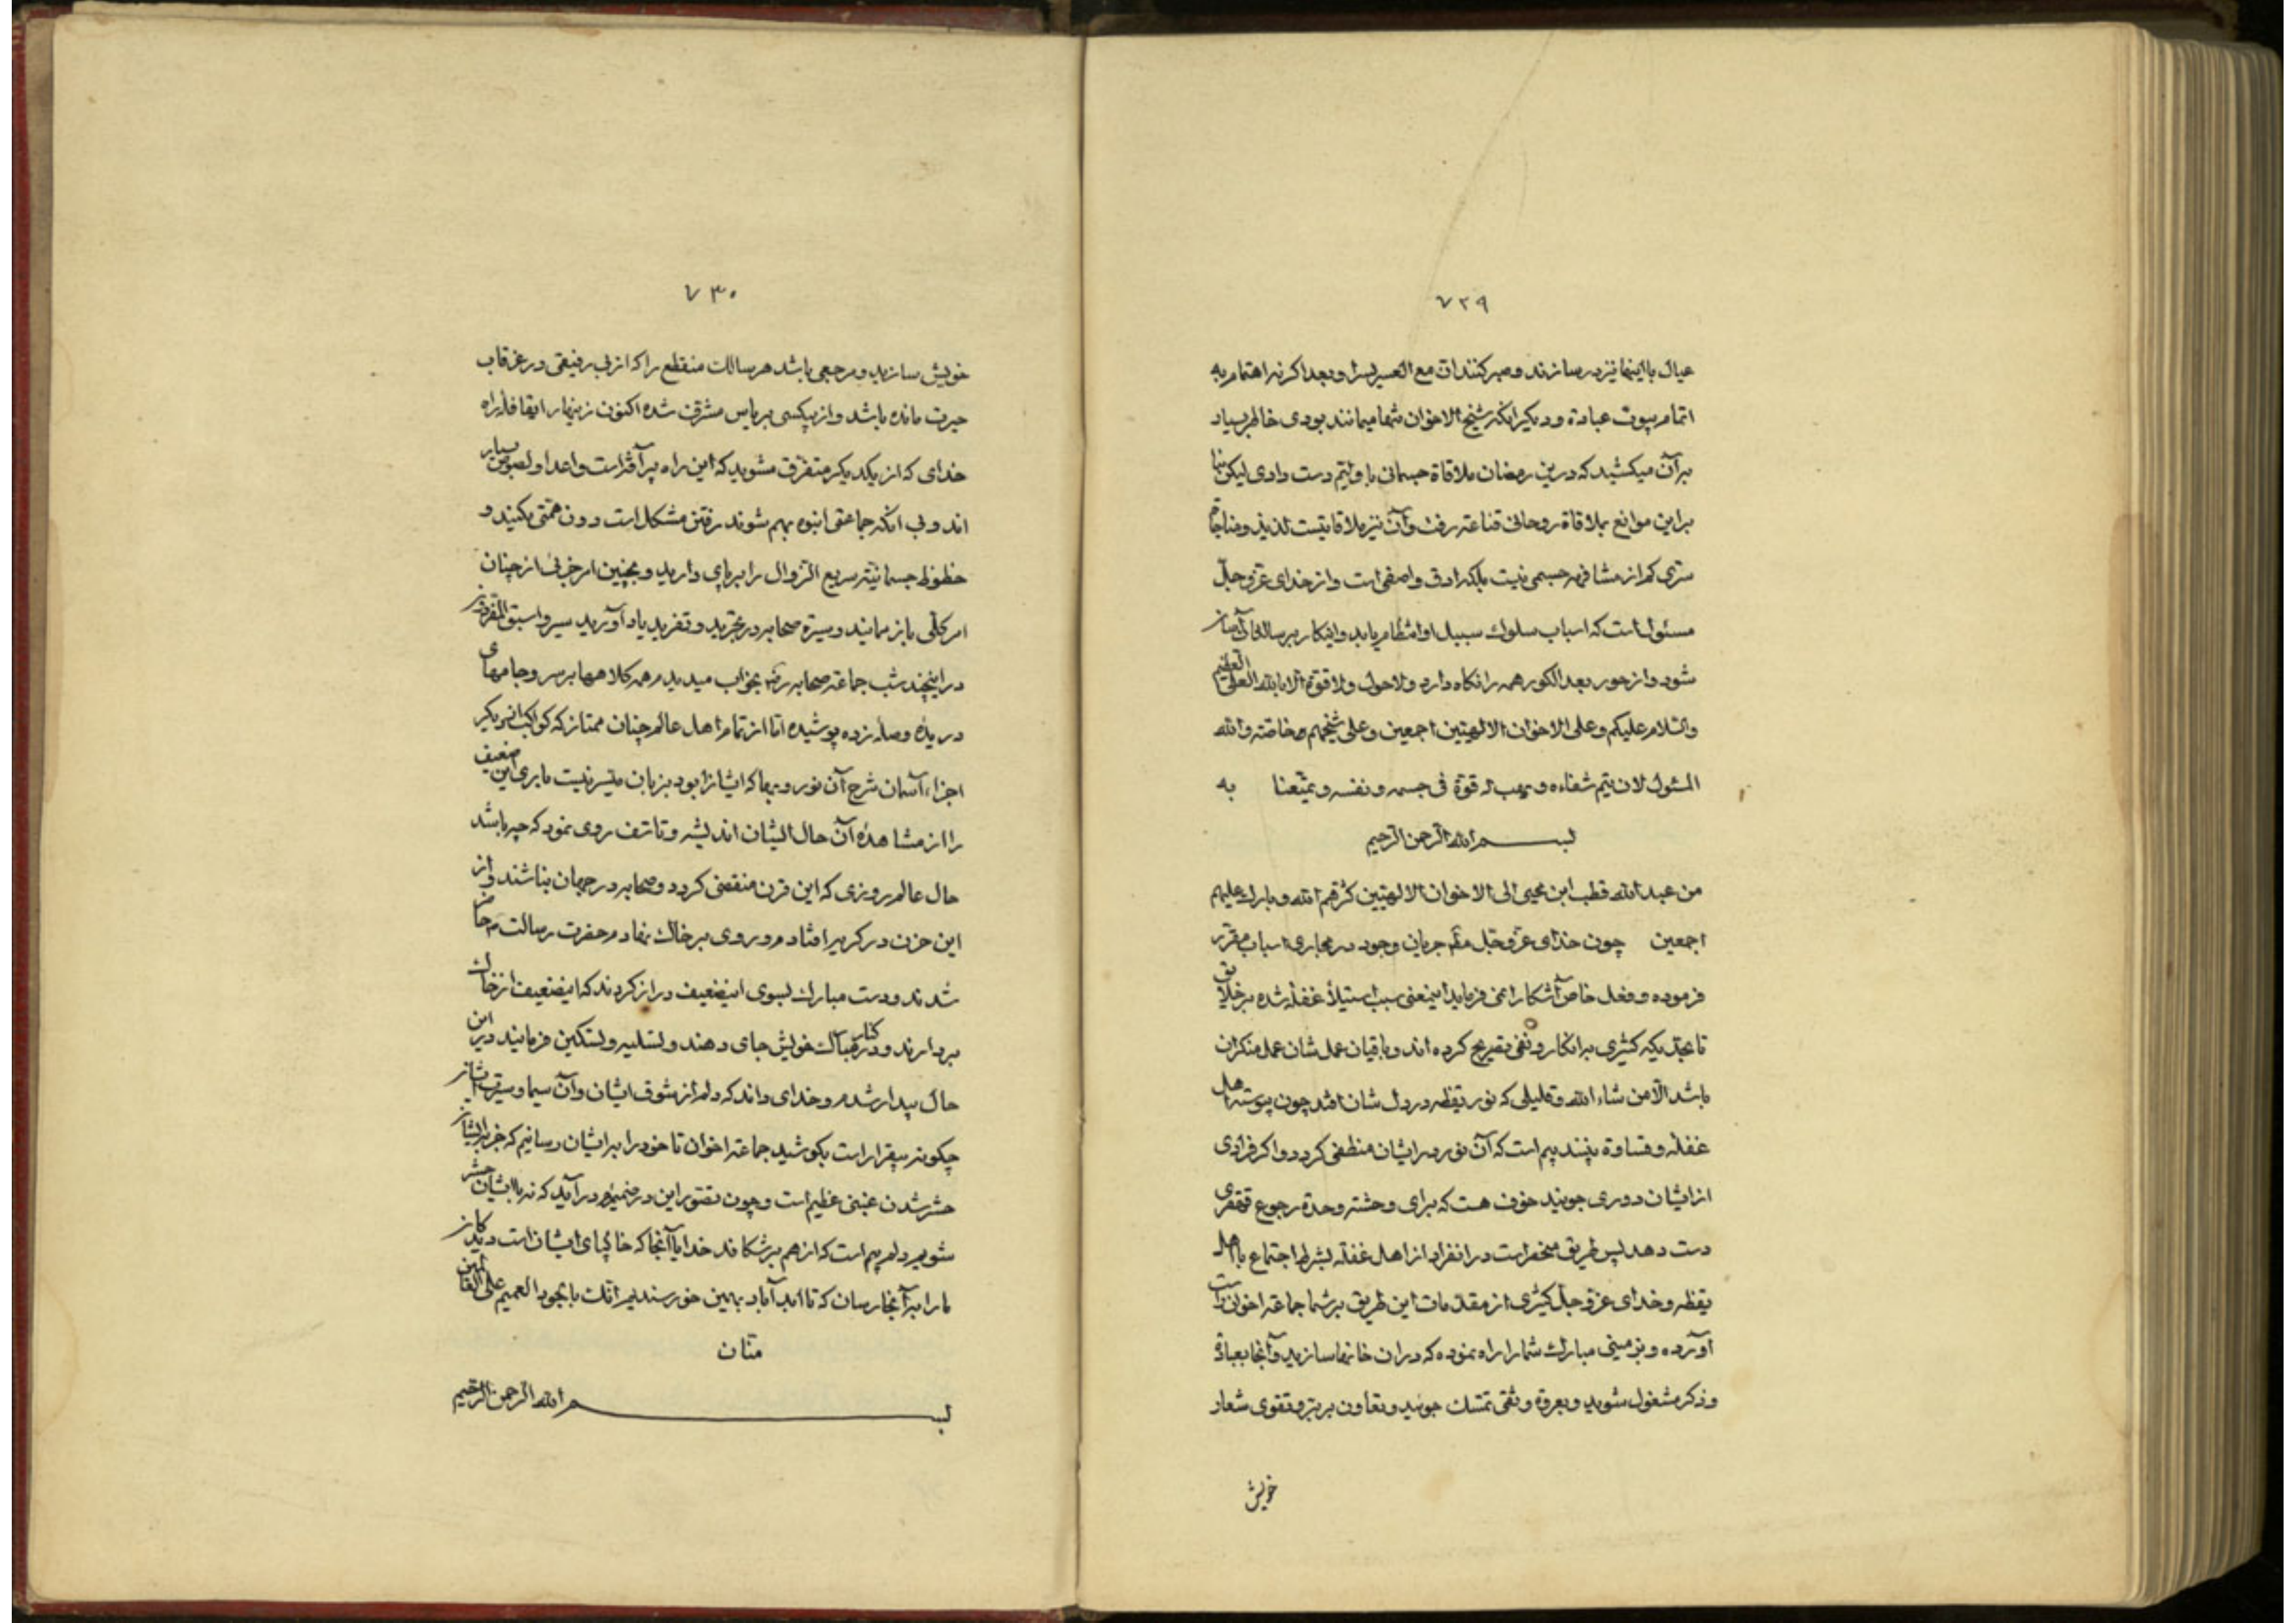 ۷۲۹
عیال با اینها نیز در سازند و صبر کنند ان مع العسر یسرا و بعد اکر نه اهتمام به
اتمام بیوت عبادة و دیکر آنکه شیخ الاخوان شما میمانند بودی خاطر بسیاد
بر آن میکشید که درین رمضان ملاقاة جسمانی با و لیتم دست دادی لیکن بنا
براین موانع بملاقاة روحانی قناعة رفت و آن نیز ملاقاتیست لذیذ و مناجاة
سرّی کم از مشافهه جسمی نیست بلکه ادق و اصفی است و از خدای عزّ و جلّ
مسئول است که اسباب سلوك سبیل او انتظام یابد و اینکار بر سالکان آسان
شود و از حور بعد الکور همه را نکاه دارد ولاحول ولا قوة الا بالله العلی العظیم
والسّلام علیکم وعلی الاخوان الالهیّین اجمعین وعلی شیخهم خاصّة والله
المسئول لان یتم شفاءه و یهب له قوّة فی جسمه و نفسه و یمتّعنا به
بسم الله الرحمن الرحیم
من عبدالله قطب ابن محیی الی الاخوان الالهیّین کثّرهم الله و بارك علیهم
اجمعین چون خدای عزّ و جلّ جریان وجود در مجاری اسباب مقرّر
فرموده و فعل خاص آشکارا نمی فرماید اینمعنی سبب استیلأ غفلة شده بر خلایق
تا بحدّیکه کثیری بر انکار و نفی تصریح کرده اند و باقیان عمل شان عمل منکران
باشد الّا من شاء الله و قلیلی که نور یقظه در دل شان افتد چون پیوسته اهل
غفلة و قساوة بینند بیم است که آن نور در ایشان منطفی کردد و اکر فرادی
از ایشان دوری جویند خوف هست که برای وحشة وحدة رجوع قهقری
دست دهد پس طریق منحصر است در انفراد از اهل غفلة بشرط اجتماع با اهل
یقظه و خدای عزّ و جلّ کثیری از مقدّمات این طریق بر شما جماعة اخوان راست
آورده و بزمینی مبارك شما را راه نموده که در ان خانها سازید و آنجا بعبادة
و ذکر مشغول شوید و بعروة وثقی تمسّك جوئید و تعاون بر برّ و تقوی شعار
خویش
۷۳۰
خویش سازید و مرجعی باشد هر سالك منقطع را که از بی رفیقی در غرقاب
حیرت مانده باشد و از بیکسی بر یاس مشرف شده اکنون زینهار ایقافله راه
خدای که از یکدیکر متفرّق مشوید که این راه پر آفة است و اعدا و لصوص بسیار
اند و بی آنکه جماعتی انبوه بهم شوند رفتن مشکل است دون همتی مکنید و
حظوظ جسمانیّه سریع الزوال را بر پای دارید و بچنین امر جزئی از چنان
امر کلّی باز ممانید و سیرة صحابه در تجرید و تفرید یاد آورید سیروا سبق المفرّدون
در اینچند شب جماعة صحابه رض بخواب میدیدم همه کلاهها بر سر و جامهای
دریده وصله زده پوشیده امّا از تمام اهل عالم چنان ممتاز که کواکب از دیکر
اجزاء آسمان شرح آن نور و بها که ایشانرا بود بزبان میّسر نیست باری این ضعیف
را از مشاهده آن حال ایشان اندیشه و تاسف روی نمود که چه باشد
حال عالم روزی که این قرن منقضی کردد و صحابه در جهان نباشند و از
این حزن در کریه افتادم و روی بر خاك نهادم حضرت رسالت ص حاضر
شدند و دست مبارك بسوی اینضعیف دراز کردند که اینضعیف از خاك
بردارند و در کنار مبارك خویش جای دهند و تسلیه و تسکین فرمایند در این
حال بیدار شدم و خدای داند که دلم از شوق ایشان و آن سیما و سیرت ایشان
چکونه بیقرار است بکوشید جماعة اخوان تا خود را بر ایشان رسانیم که جز با ایشان
حشر شدن غبنی عظیم است و چون تصوّر این در ضمیرم در آید که نه با ایشان حشر
شویم دلم بیم است که از هم بر شکافد خدایا آنجا که خاکپای ایشان است دیدکان
ما را بر آنجا رسان که تا ابد آباد بهمین خورسندیم انّك بالجود العمیم علی القانتین
منّان
بسم الله الرحمن الرحیم